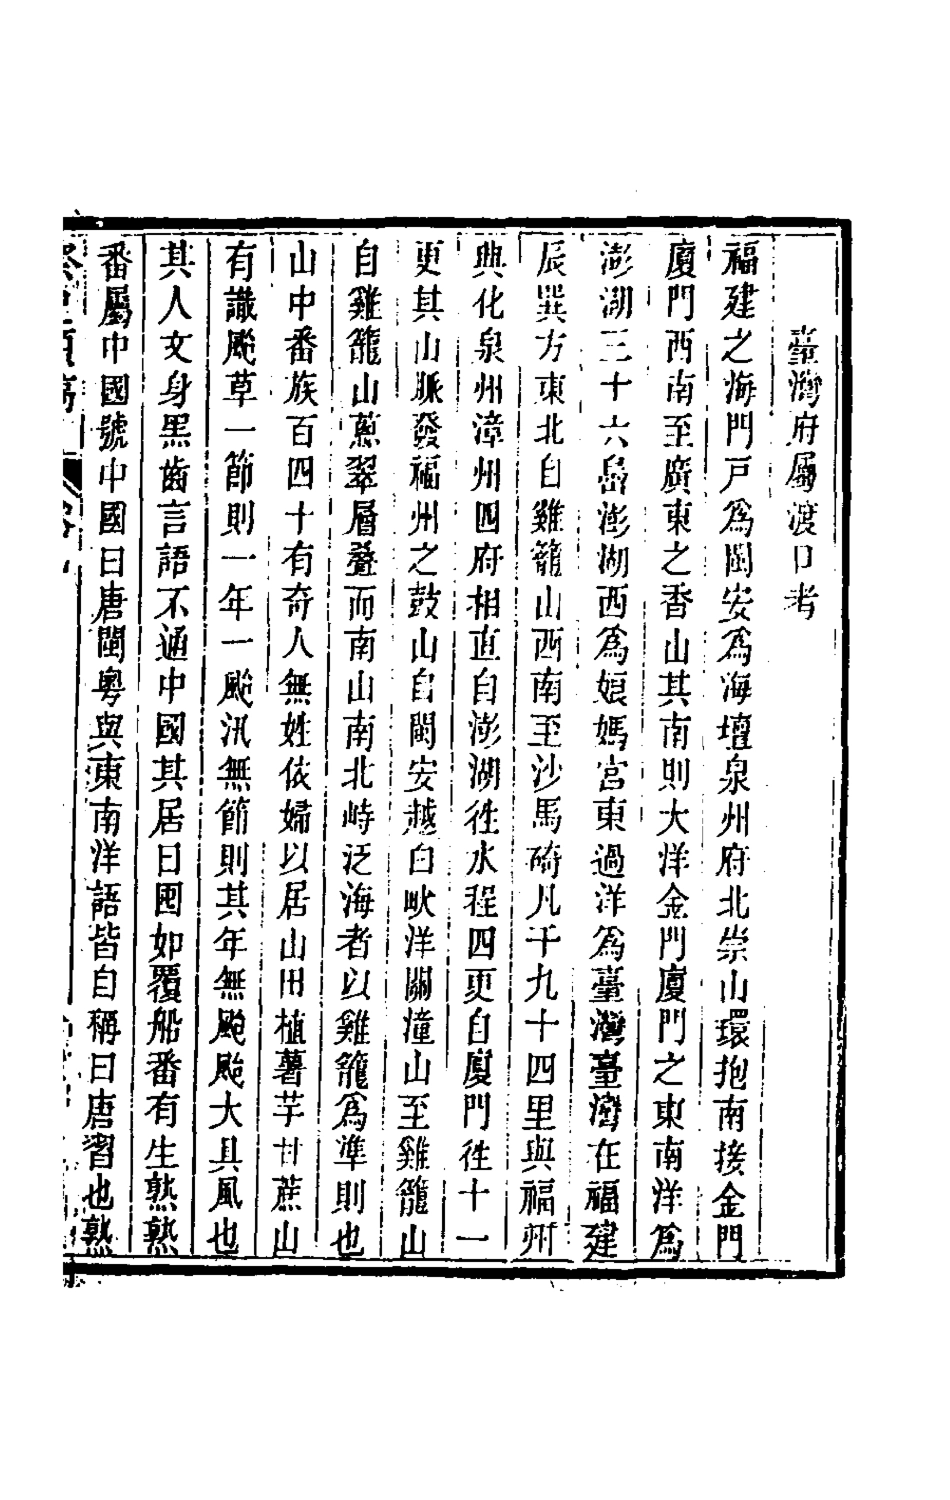 臺灣府屬渡口考
福建之海門戶為閩安為海壇泉州府北崇山環抱南接金門
廈門西南至廣東之香山其南則大洋金門廈門之東南洋為
澎湖三十六島澎湖西為娘媽宮東過洋為臺灣臺灣在福建
辰巽方東北自雞籠山西南至沙馬碕凡千九十四里與福州
興化泉州漳州四府相直自澎湖往水程四更自廈門往十一
更其山脈發福州之鼓山自閩安越白畎洋關潼山至雞籠山
自雞籠山蔥翠層疊而南山南北峙泛海者以雞籠為準則也
山中番族百四十有奇人無姓依婦以居山田植薯芋甘蔗山
有識颱草一節則一年一颱汛無節則其年無颱颱大具風也
其人文身黑齒言語不通中國其居曰囤如覆船番有生熟熟
番屬中國號中國曰唐閩粵與東南洋語皆自稱曰唐習也熟